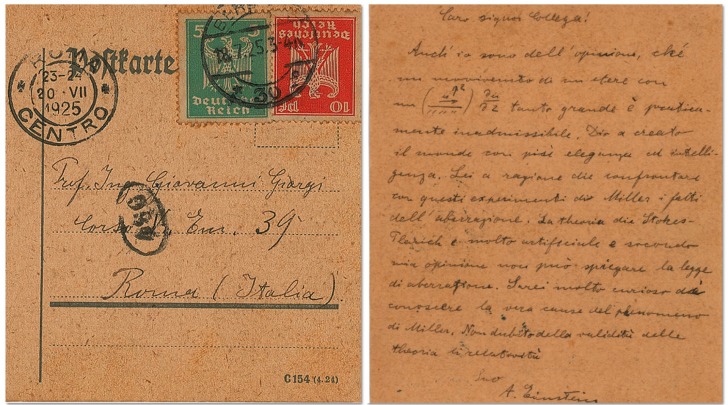 Postkarte
ROMA
23-24
20 · VII
1925
CENTRO
5
Deutsches
Reich
10
Deutsches
Reich
25.3-4N
Prof. Ing. Giovanni Giorgi
Corso V. Em. 39
Roma (Italia)
C 154 (4.24)
Caro signor Collega!
Anch' io sono dell' opinione, che
un movimento di un etere con
un ∂u/∂z tanto grande è pratica-
mente inadmissibile. Dio a creato
il mondo con più eleganza ed intelli-
genza. Lei a ragione di confrontare
con questi experimenti di Miller i fatti
dell' aberrazione. La theoria di Stokes-
Planck è molto artificiale e secondo
mia opinione non può spiegare la legge
di aberrazione. Sarei molto curioso di
conoscere la vera causa del phenomeno
di Miller. Non dubito della validità delle
theoria di relatività
Suo
A. Einstein